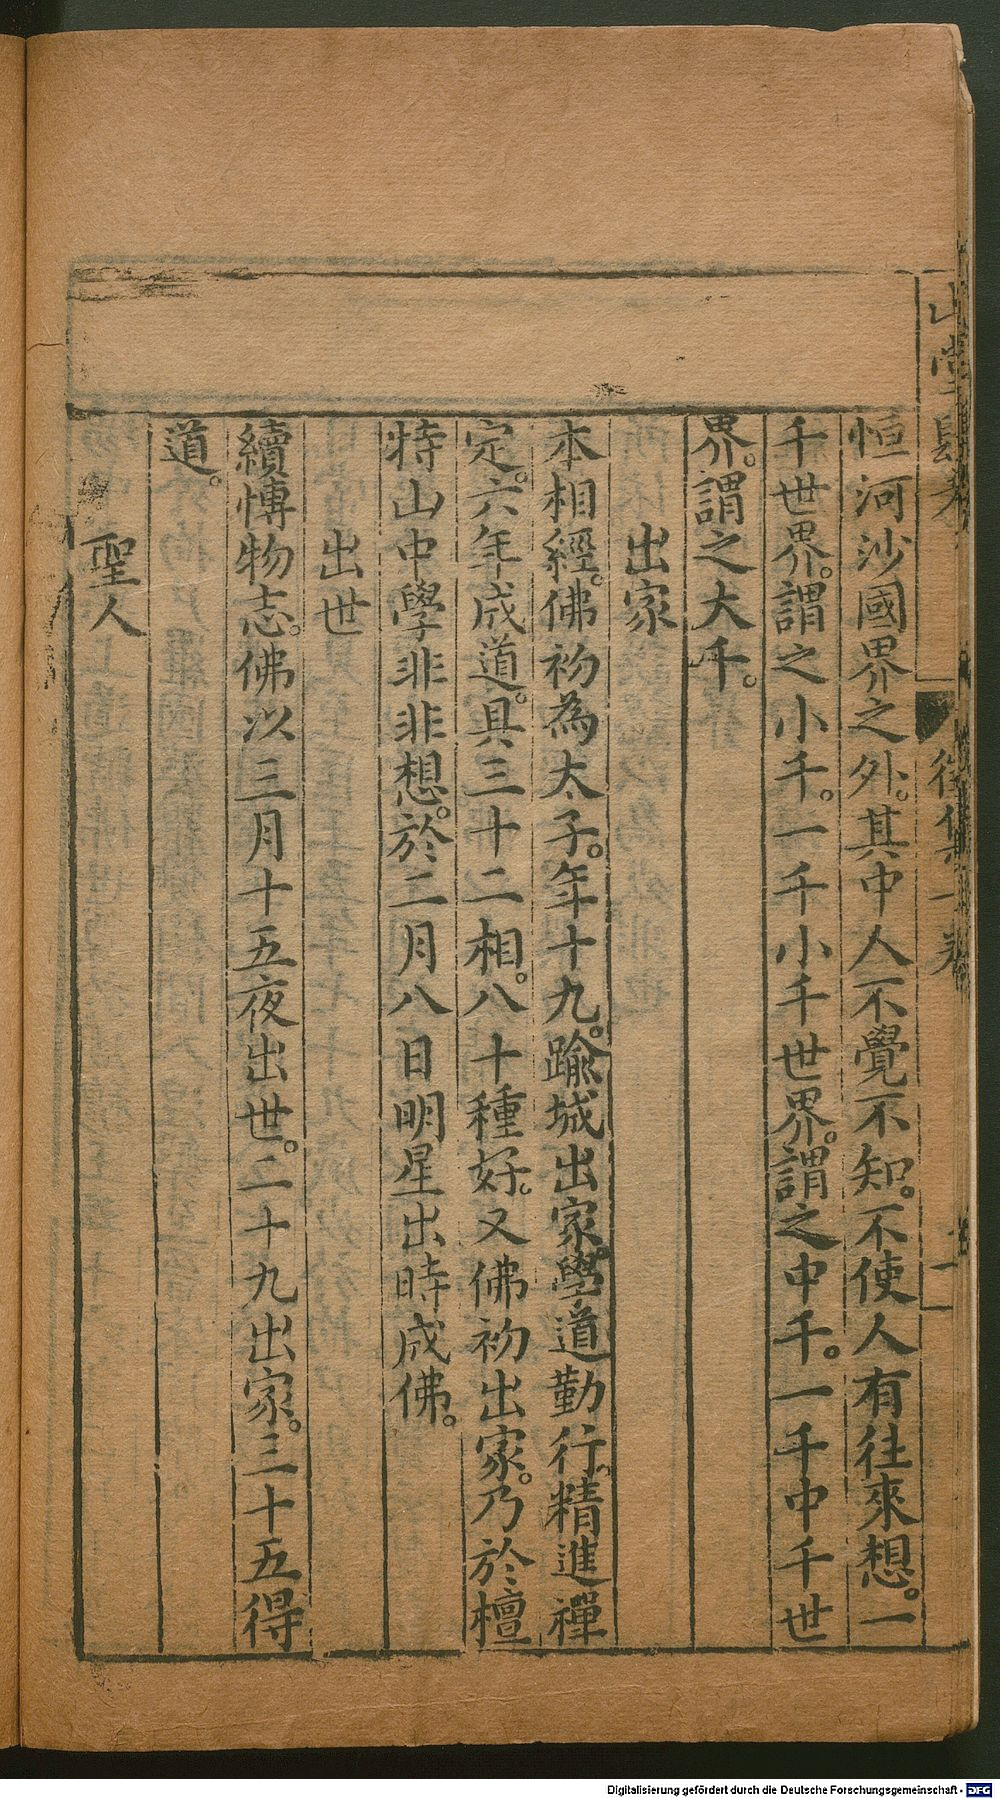 山堂肆考
徵集一卷
恒河沙國界之外。其中人不覺不知。不使人有往來想。一
千世界。謂之小千。一千小千世界。謂之中千。一千中千世
界。謂之大千。
出家
本相經。佛初為太子。年十九。踰城出家。學道勤行。精進禪
定。六年成道。具三十二相。八十種好。又佛初出家。乃於檀
特山中學非非想。於二月八日明星出時成佛。
出世
續博物志。佛以三月十五夜出世。二十九出家。三十五得
道。
聖人
Digitalisierung gefördert durch die Deutsche Forschungsgemeinschaft - DFG